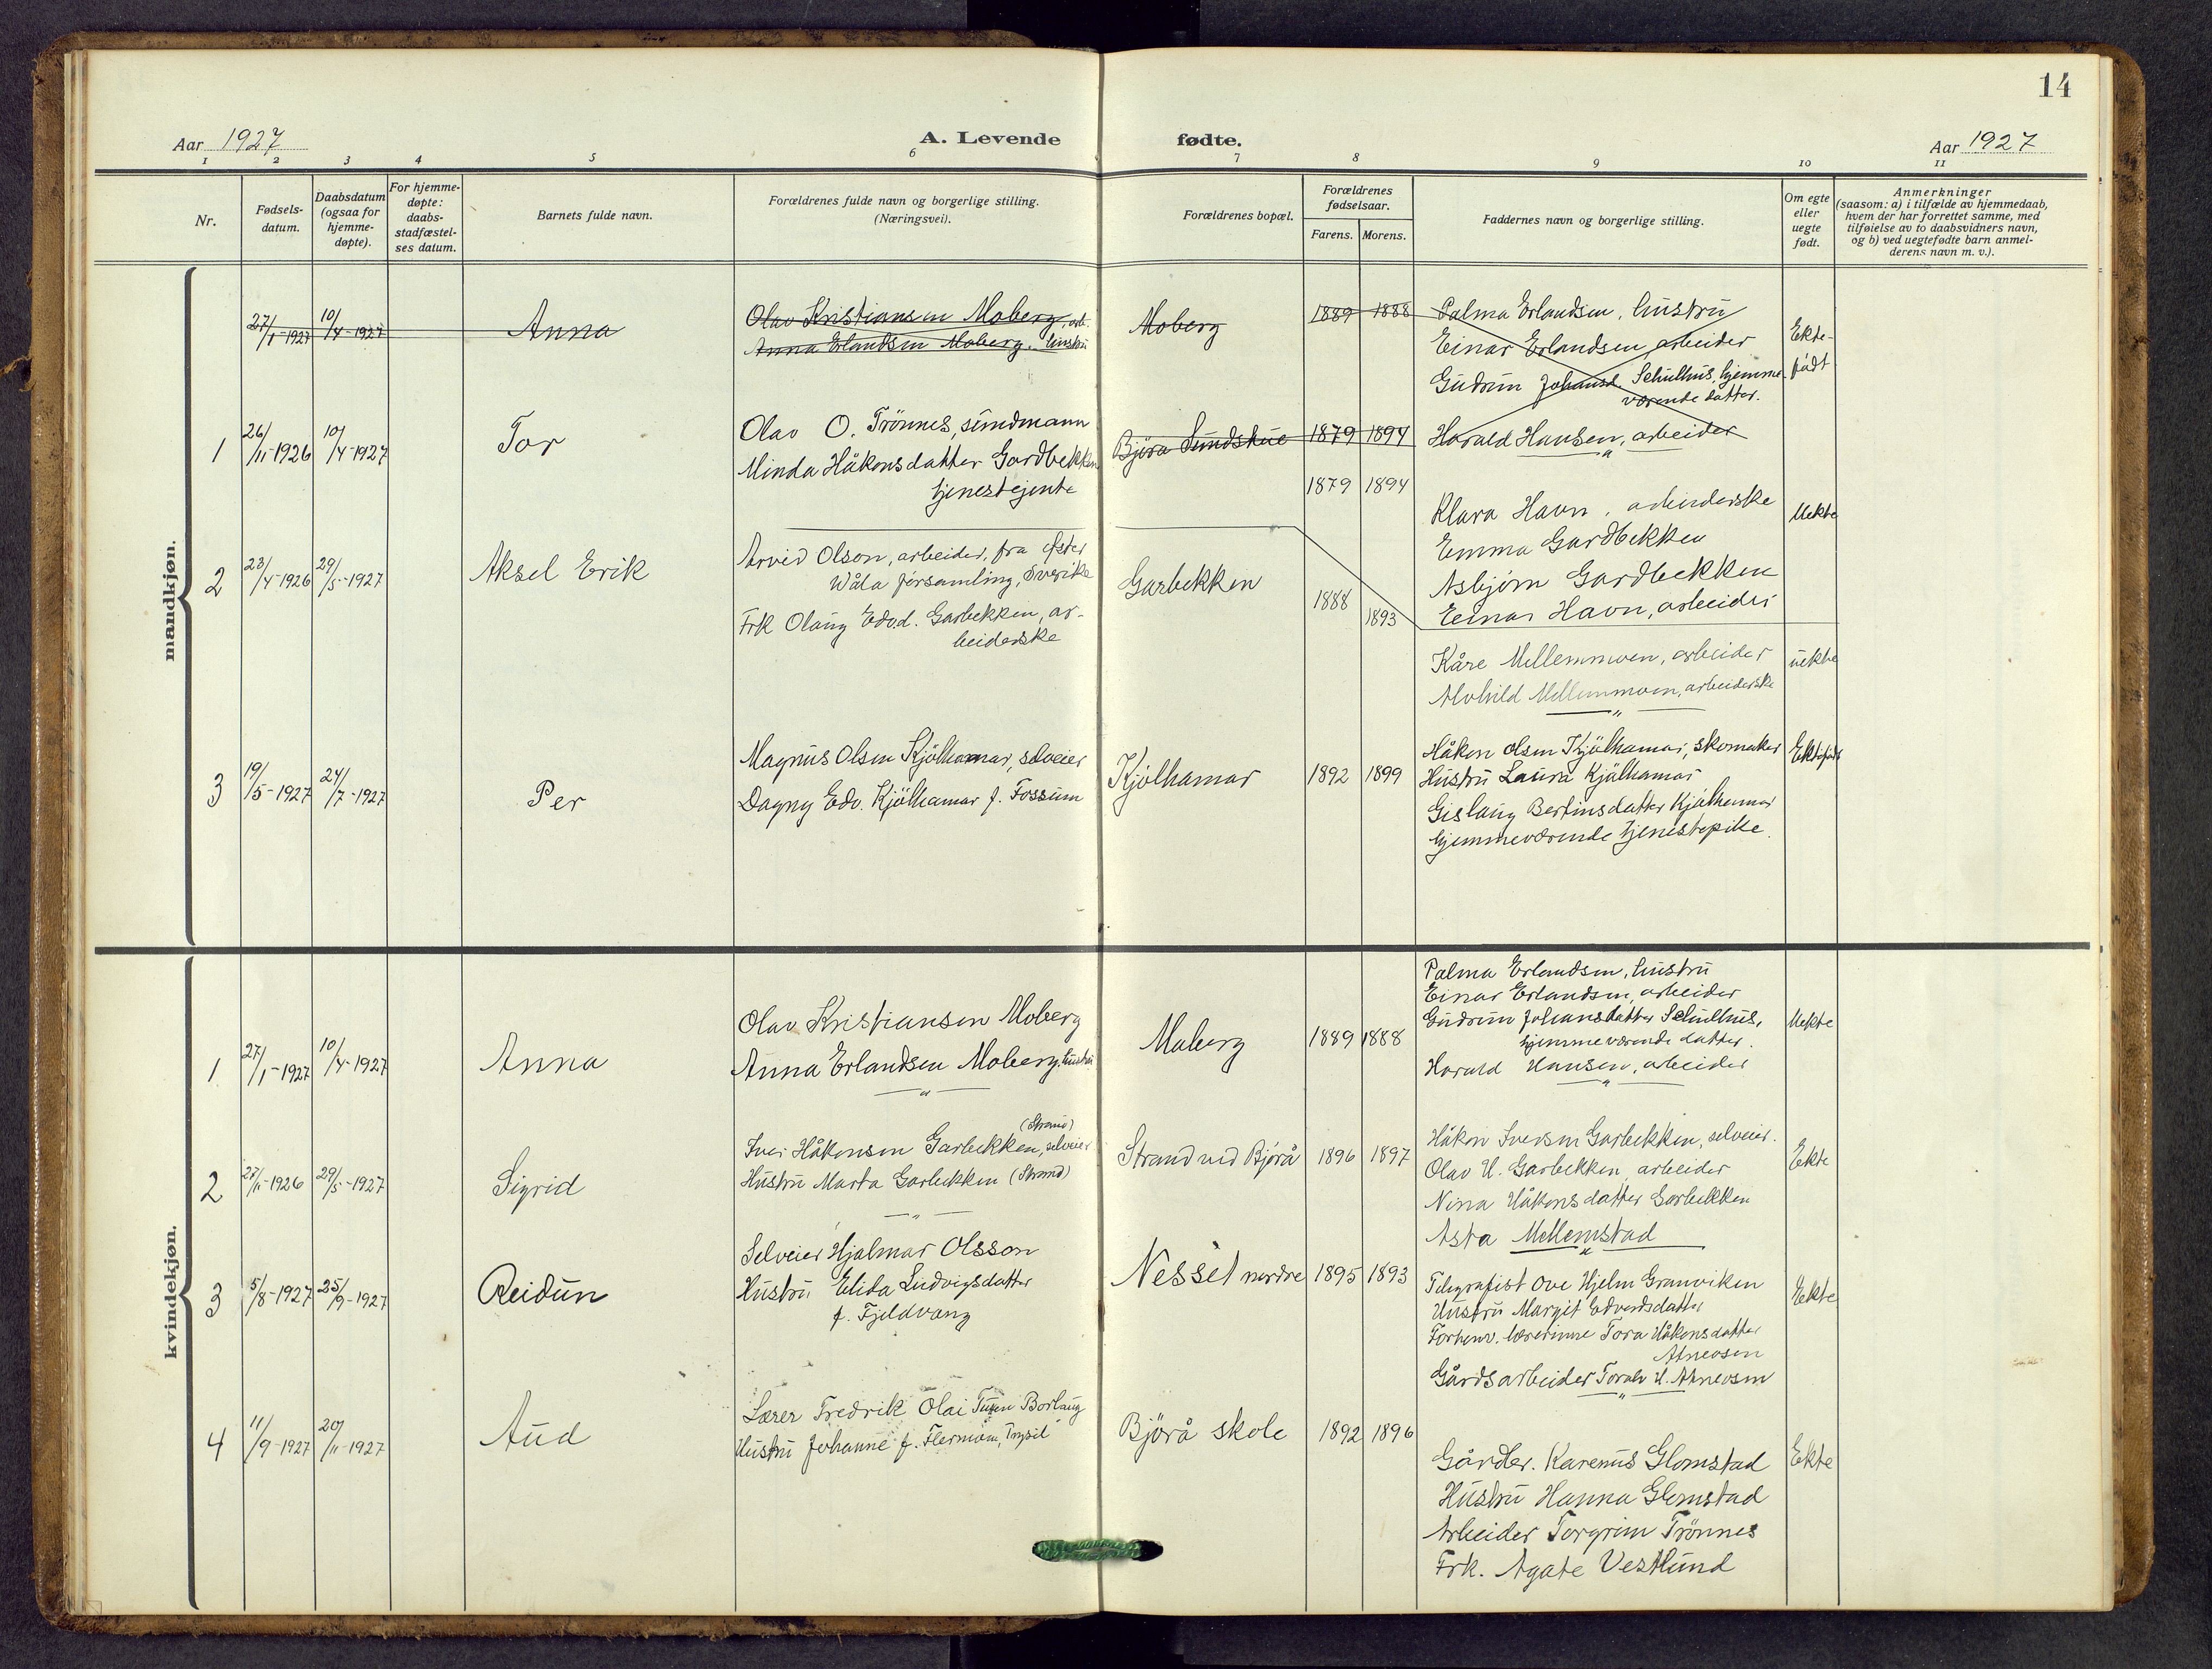 14
Aar 1927
A. Levende fødte.
Aar 1927
1 2 3 4 5 6 7 8 9 10 11
Nr.
Fødsels-
datum.
Daabsdatum
(ogsaa for
hjemme-
døpte).
For hjemme-
døpte:
daabs-
stadfæstel-
ses datum.
Barnets fulde navn.
Forældrenes fulde navn og borgerlige stilling.
(Næringsvei).
Forældrenes bopæl.
Forældrenes
fødselsaar.
Farens. Morens.
Faddernes navn og borgerlige stilling.
Om egte
eller
uegte
født.
Anmerkninger
(saasom: a) i tilfælde av hjemmedaab,
hvem der har forrettet samme, med
tilføielse av to daabsvidners navn,
og b) ved uegtefødte barn anmel-
derens navn m. v.).
mandkjøn.
27/1-1927 10/4-1927
Anna
Olav Kristiansen Moberg, arb.
Anna Erlandsen Moberg. hustru
Moberg
1889 1888
Palma Erlandsen, hustru
Einar Erlandsen, arbeider
Gudrun Johansd. Schulhus, hjemme-
værende datter.
Harald Hansen, arbeider
"
Ekte-
født
1 26/11-1926 10/4-1927
Tor
Olav O. Trönnes, sundmann
Minda Håkonsdatter Gardbekken
tjenestejente
Björa Sundskue
1879 1894
1879 1894
Klara Havn, arbeiderske
Emma Gardbekken
Asbjörn Gardbekken
Einar Havn, arbeider
Uekte
2 23/4-1926 29/5-1927
Aksel Erik
Arvid Olson, arbeider, fra Øster
Wåla forsamling, Sverike
Frk Olaug Edv.d. Garbekken, ar-
beiderske
Garbekken
1888 1893
Kåre Mellemmoen, arbeider
Alvhild Mellemmoen, arbeiderske
"
uekte
3 19/5-1927 24/7-1927
Per
Magnus Olsen Kjölhamar, selveier
Dagny Edv. Kjölhamar f. Fossum
Kjölhamar
1892 1899
Håkon Olsen Kjölhamar, skomaker
Hustru Laura Kjölhamar
Gislaug Bertinsdatter Kjölhamar
hjemmeværende tjenestepike.
Ektefødt
kvindekjøn.
1 27/1-1927 10/4-1927
Anna
Olav Kristiansen Moberg
Anna Erlandsen Moberg. hustru
"
Moberg
1889 1888
Palma Erlandsen, hustru
Einar Erlandsen, arbeider
Gudrun Johansdatter Schulhus,
hjemmeværende datter.
Harald Hansen, arbeider
"
Uekte
2 27/11-1926 29/5-1927
Sigrid
(Strand)
Iver Håkonsen Garbekken, selveier
Hustru Marta Garbekken (Strand)
"
Strand ved Björå
1896 1897
Håkon Iversen Garbekken, selveier.
Olav H. Garbekken, arbeider
Nina Håkonsdatter Garbekken
Asta Mellemstad
"
Ekte
3 5/8-1927 25/9-1927
Reidun
Selveier Hjalmar Olsson
Hustru Elida Ludvigsdatter
f. Fjeldvang
Nesset nordre
1895 1893
Telegrafist Ove Hjelm Granviken
Hustru Margit Edvardsdatter
Forhenv. lærerinne Tora Håkonsdatter
Akneosen
Gårdsarbeider Toralv H. Akneosen
"
Eekte
4 11/9-1927 20/11-1927
Aud
Lærer Fredrik Olai Tuen Borlaug
Hustru Johanne f. Flermoen, Trysil
Björå skole
1892 1896
Gårdbr. Karenus Glomstad
Hustru Hanna Glomstad
Arbeider Torgrim Trönnes
Frk. Agate Vestlund
Ekte